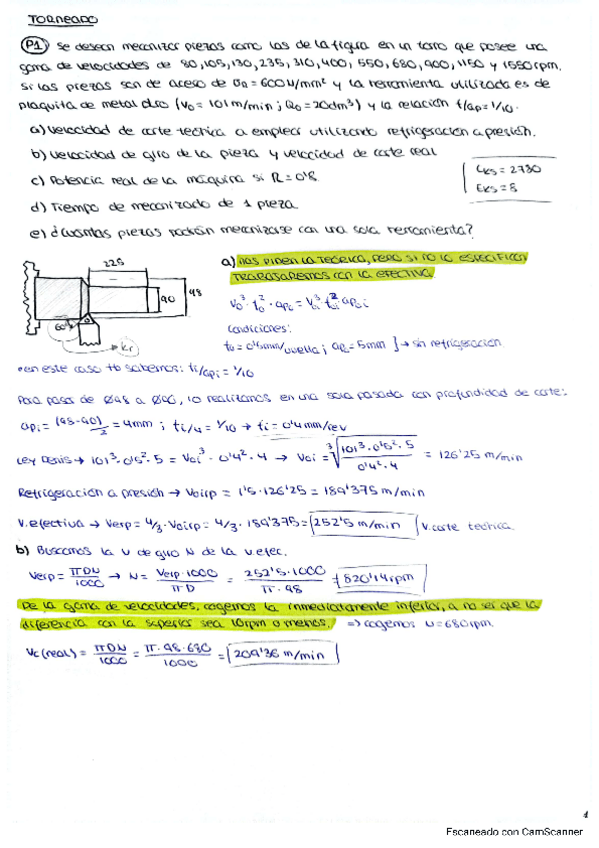 TORNEADO
P1) Se desean mecanizar piezas como las de la figura en un torno que posee una
gama de velocidades de 80, 105, 130, 235, 310, 400, 550, 680, 900, 1150 y 1550rpm.
Si las piezas son de acero de σR = 600N/mm² y la herramienta utilizada es de
plaquita de metal duro (V0 = 101 m/min ; Q0 = 20dm³) y la relación t/ap = 1/10.
a) Velocidad de corte teórica a emplear utilizando refrigeración a presión.
b) Velocidad de giro de la pieza y velocidad de corte real
c) Potencia real de la máquina si R = 0'8
d) Tiempo de mecanizado de 1 pieza
e) ¿Cuántas piezas podrán mecanizarse con una sola herramienta?
Lks = 2730
Eks = 8
225
90
98
60º
kr
a) Nos piden la teórica, pero si no lo especifican
trabajaremos con la efectiva.
V0³ · t0² · ap0 = Voi³ ti² api
Condiciones:
t0 = 0'5mm/vuelta ; ap0 = 5mm } → sin refrigeración
•en este caso tb sabemos: ti/api = 1/10
Para pasar de Ø98 a Ø90, lo realizamos en una sola pasada con profundidad de corte:
api = (98-90)/2 = 4mm ; ti/4 = 1/10 → ti = 0'4mm/rev
Ley Denis → 101³ · 0'5² · 5 = Voi³ · 0'4² · 4 → Voi = ³√(101³ · 0'5² · 5 / 0'4² · 4) = 126'25 m/min
Refrigeración a presión → Voirp = 1'5 · 126'25 = 189'375 m/min
V.efectiva → Verp = 4/3 · Voirp = 4/3 · 189'375 = 252'5 m/min V.corte teórica.
b) Buscamos la V de giro N de la v.efec.
Verp = πDN/1000 → N = Verp · 1000/πD = 252'5 · 1000/π · 98 = 820'14rpm
De la gama de velocidades, cogemos la inmediatamente inferior, a no ser que la
diferencia con la superior sea 10rpm o menos. => cogemos N = 680rpm.
Vc (real) = πDN/1000 = π · 98 · 680/1000 = 209'36 m/min
4
Escaneado con CamScanner